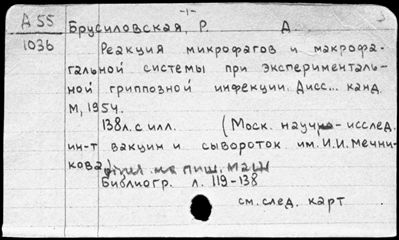 -1-
А 55
1036
Брусиловская, Р. А.
Реакция микрофагов и макрофа-
гальной системы при эксперименталь-
ной гриппозной инфекции. Дисс... канд.
М, 1954.
138 л. с илл. (Моск. научно-исслед.
ин-т вакцин и сывороток им. И.И. Мечни-
кова)
Библиогр. л. 119-138
см. след. карт